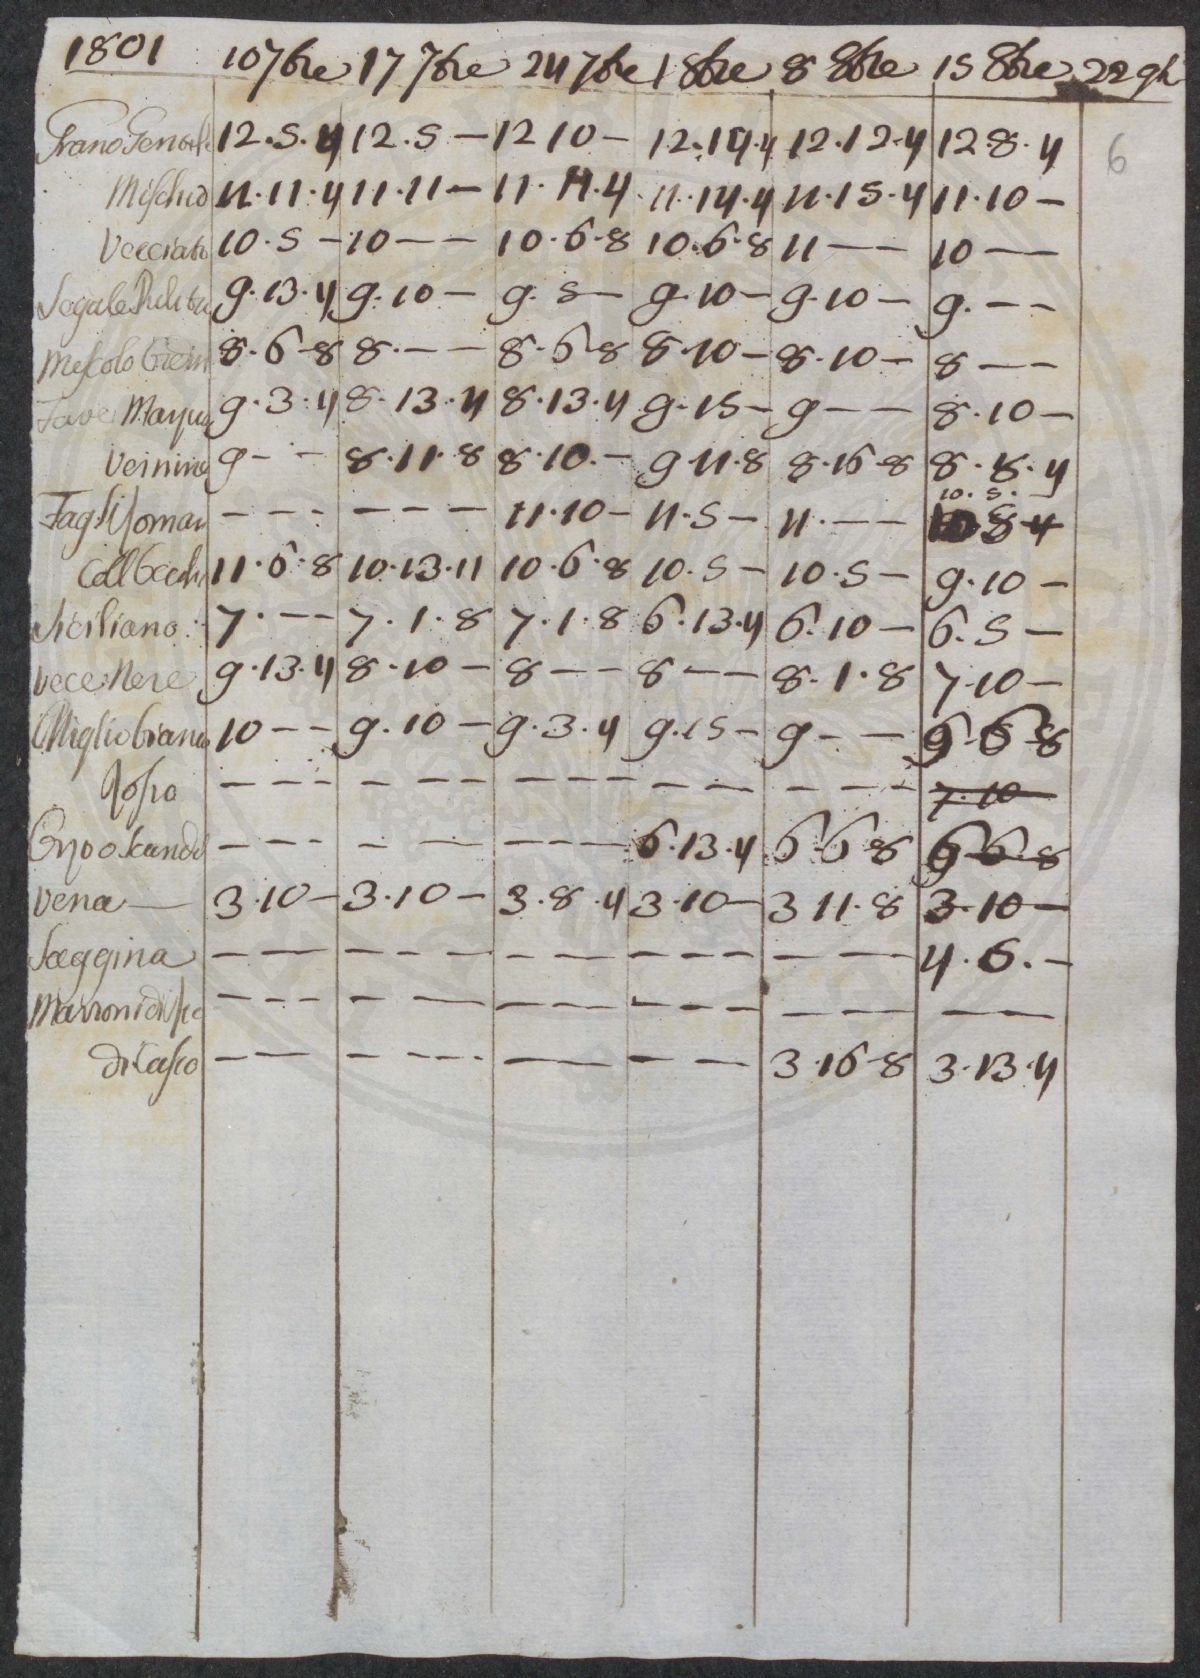 1801 10 7bre 17 7bre 24 7bre 1 8bre 8 8bre 15 8bre 22 gh
6
Grano Gentile 12.5.4 12.5 — 12 10 — 12.14.4 12.12.4 12.8.4
Mischio 11.11.4 11.11 — 11.11.4 11.14.4 11.15.4 11.10 —
Vecciato 10.5 — 10 — — 10.6.8 10.6.8 11 — — 10 — —
Segale Pulita 9.13.4 9.10 — 9.5 — 9.10 — 9.10 — 9. — —
Mescolo 8.6.8 8. — — 8.6.8 8.10 — 8.10 — 8 — —
Fave 9.3.4 8.13.4 8.13.4 9.15 — 9 — — 8.10 —
Vernine 9 — — 8.11.8 8.10. — 9.11.8 8.16.8 8.8.4
10.5. —
Fagli Roman — — — — — — 11.10 — 11.5 — 11. — — 10 8 4
Coll Occhi 11.6.8 10.13.11 10.6.8 10.5 — 10.5 — 9.10 —
Siciliano 7. — — 7.1.8 7.1.8 6.13.4 6.10 — 6.5 —
Vece Nere 9.13.4 8.10 — 8 — — 8 — — 8.1.8 7.10 —
Miglio bianco 10 — — 9.10 — 9.3.4 9.15 — 9 — — 6 6 8
Rosso — — — — — — — — — — — — — — — 7.10
Orzo Scand — — — — — — — — — 6.13.4 6 6 8 6 6.8
Vena — 3.10 — 3.10 — 3.8.4 3.10 — 3 11.8 3.10 —
Saggina — — — — — — — — — — — — — — 4.6. —
Marroni di — — — — — — — — — — — — — — — —
di Casco — — — — — — — — — 3.16.8 3.13.4